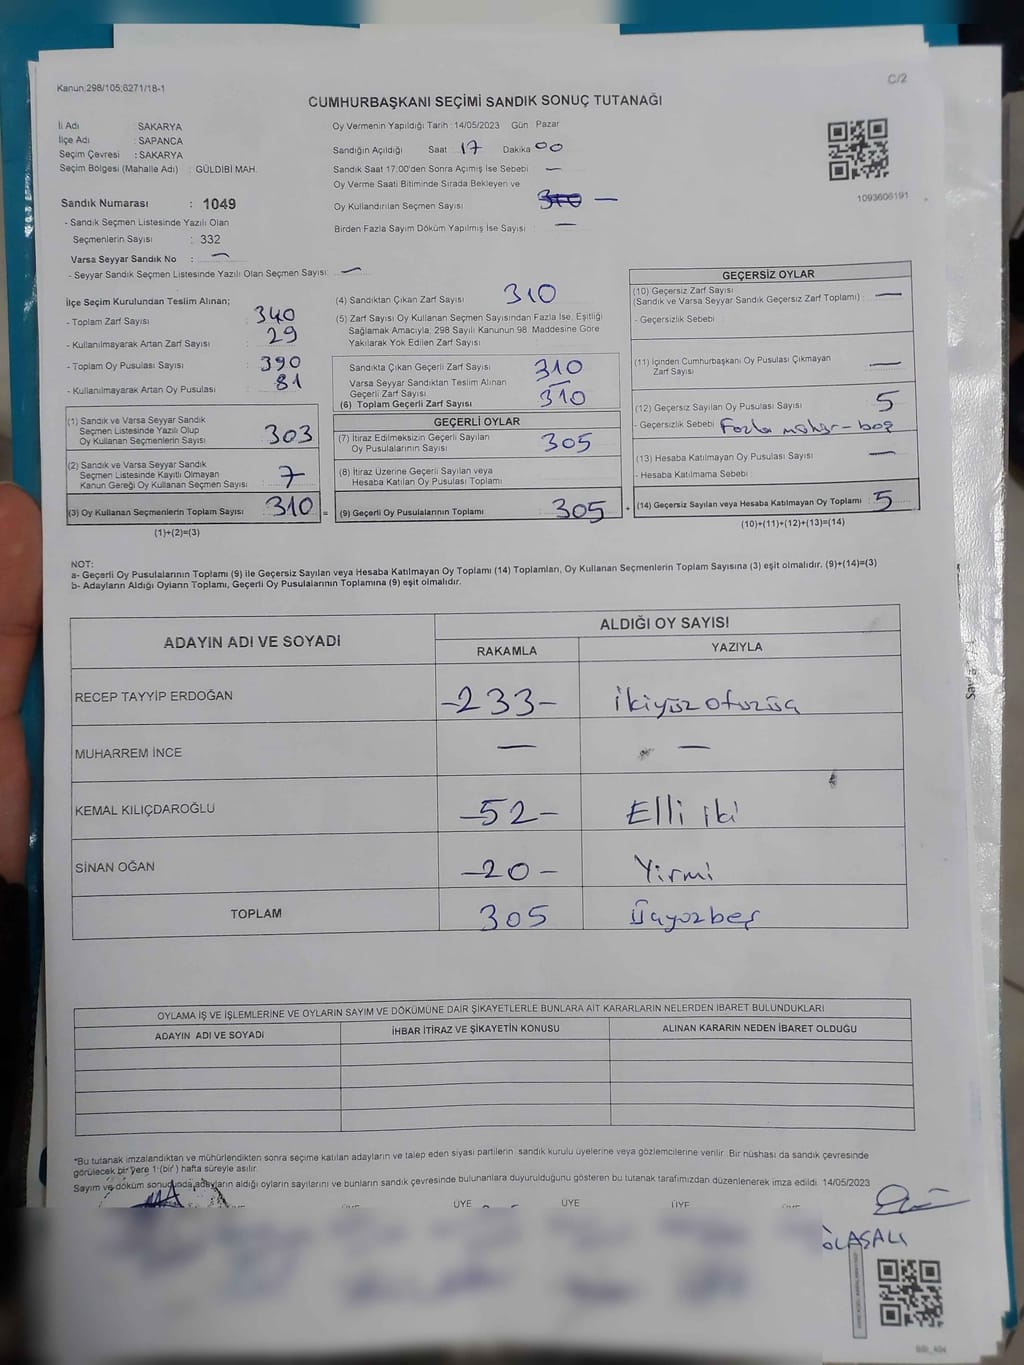 C/2
Kanun:298/105;6271/18-1
CUMHURBAŞKANI SEÇİMİ SANDIK SONUÇ TUTANAĞI
İli Adı : SAKARYA
İlçe Adı : SAPANCA
Seçim Çevresi : SAKARYA
Seçim Bölgesi (Mahalle Adı) : GÜLDİBİ MAH.
Sandık Numarası : 1049
- Sandık Seçmen Listesinde Yazılı Olan
Seçmenlerin Sayısı : 332
Varsa Seyyar Sandık No : —
- Seyyar Sandık Seçmen Listesinde Yazılı Olan Seçmen Sayısı: —
Oy Vermenin Yapıldığı Tarih : 14/05/2023 Gün Pazar
Sandığın Açıldığı Saat : 17 Dakika 00
Sandık Saat 17:00'den Sonra Açımış İse Sebebi —
Oy Verme Saati Bitiminde Sırada Bekleyen ve
Oy Kullandırılan Seçmen Sayısı 310 —
Birden Fazla Sayım Döküm Yapılmış İse Sayısı : —
1093606191
İlçe Seçim Kurulundan Teslim Alınan;
- Toplam Zarf Sayısı : 340
- Kullanılmayarak Artan Zarf Sayısı : 29
- Toplam Oy Pusulası Sayısı : 390
- Kullanılmayarak Artan Oy Pusulası : 81
(1) Sandık ve Varsa Seyyar Sandık
Seçmen Listesinde Yazılı Olup
Oy Kullanan Seçmenlerin Sayısı 303
(2) Sandık ve Varsa Seyyar Sandık
Seçmen Listesinde Kayıtlı Olmayan
Kanun Gereği Oy Kullanan Seçmen Sayısı 7
(3) Oy Kullanan Seçmenlerin Toplam Sayısı 310 =
(1)+(2)=(3)
(4) Sandıktan Çıkan Zarf Sayısı 310
(5) Zarf Sayısı Oy Kullanan Seçmen Sayısından Fazla İse, Eşitliği
Sağlamak Amacıyla; 298 Sayılı Kanunun 98. Maddesine Göre
Yakılarak Yok Edilen Zarf Sayısı:
Sandıkta Çıkan Geçerli Zarf Sayısı 310
Varsa Seyyar Sandıktan Teslim Alınan
Geçerli Zarf Sayısı —
(6) Toplam Geçerli Zarf Sayısı 310
GEÇERLİ OYLAR
(7) İtiraz Edilmeksizin Geçerli Sayılan
Oy Pusulalarının Sayısı 305
(8) İtiraz Üzerine Geçerli Sayılan veya
Hesaba Katılan Oy Pusulası Toplamı
(9) Geçerli Oy Pusulalarının Toplamı 305 +
GEÇERSİZ OYLAR
(10) Geçersiz Zarf Sayısı
(Sandık ve Varsa Seyyar Sandık Geçersiz Zarf Toplamı) : —
- Geçersizlik Sebebi
(11) İçinden Cumhurbaşkanı Oy Pusulası Çıkmayan
Zarf Sayısı —
(12) Geçersiz Sayılan Oy Pusulası Sayısı 5
- Geçersizlik Sebebi Fazla mühür - boş
(13) Hesaba Katılmayan Oy Pusulası Sayısı —
- Hesaba Katılmama Sebebi :
(14) Geçersiz Sayılan veya Hesaba Katılmayan Oy Toplamı 5
(10)+(11)+(12)+(13)=(14)
NOT:
a- Geçerli Oy Pusulalarının Toplamı (9) ile Geçersiz Sayılan veya Hesaba Katılmayan Oy Toplamı (14) Toplamları, Oy Kullanan Seçmenlerin Toplam Sayısına (3) eşit olmalıdır. (9)+(14)=(3)
b- Adayların Aldığı Oyların Toplamı, Geçerli Oy Pusulalarının Toplamına (9) eşit olmalıdır.
ADAYIN ADI VE SOYADI ALDIĞI OY SAYISI
RAKAMLA YAZIYLA
RECEP TAYYİP ERDOĞAN -233- İkiyüz otuzüç
MUHARREM İNCE — —
KEMAL KILIÇDAROĞLU -52- Elli iki
SİNAN OĞAN -20- Yirmi
TOPLAM 305 Üçyüzbeş
OYLAMA İŞ VE İŞLEMLERİNE VE OYLARIN SAYIM VE DÖKÜMÜNE DAİR ŞİKAYETLERLE BUNLARA AİT KARARLARIN NELERDEN İBARET BULUNDUKLARI
ADAYIN ADI VE SOYADI İHBAR İTİRAZ VE ŞİKAYETİN KONUSU ALINAN KARARIN NEDEN İBARET OLDUĞU
*Bu tutanak imzalandıktan ve mühürlendikten sonra seçime katılan adayların ve talep eden siyasi partilerin sandık kurulu üyelerine veya gözlemcilerine verilir. Bir nüshası da sandık çevresinde
görülecek bir yere 1 (bir) hafta süreyle asılır.
Sayım ve döküm sonucunda adayların aldığı oyların sayılarını ve bunların sandık çevresinde bulunanlara duyurulduğunu gösteren bu tutanak tarafımızdan düzenlenerek imza edildi. 14/05/2023
ÜYE ÜYE ÜYE ÜYE ÜYE